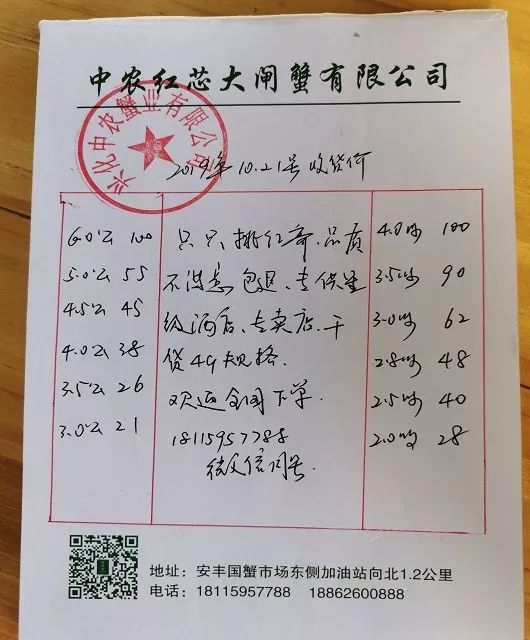 中农红芯大闸蟹有限公司
兴化中农蟹业有限公司
2019年10.21号收货价
6.0公 100
5.0公 55
4.5公 45
4.0公 38
3.5公 26
3.0公 21
只只挑红膏、品质
不满意包退、专供星
级酒店、专卖店、干
货4G规格.
欢迎全国下单.
18115957788
微信同号.
4.0母 100
3.5母 90
3.0母 62
2.8母 48
2.5母 40
2.0母 28
地址：安丰国蟹市场东侧加油站向北1.2公里
电话：18115957788 18862600888